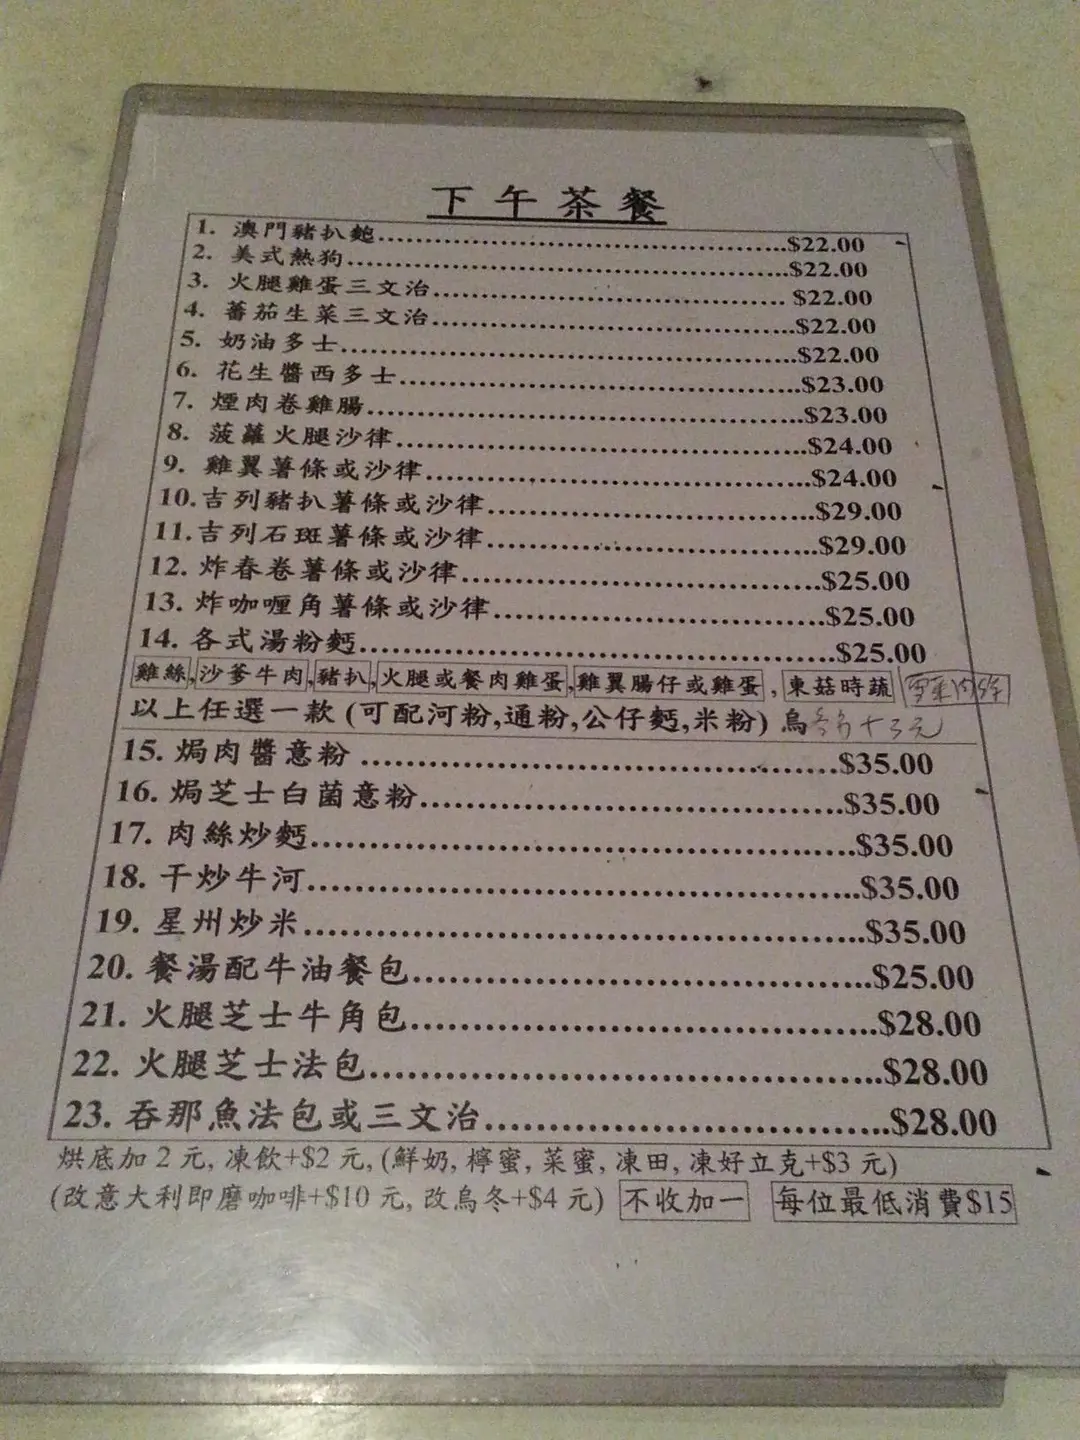 下午茶餐
1. 澳門豬扒飽........$22.00
2. 美式熱狗........$22.00
3. 火腿雞蛋三文治........$22.00
4. 蕃茄生菜三文治........$22.00
5. 奶油多士........$22.00
6. 花生醬西多士........$23.00
7. 煙肉卷雞腸........$23.00
8. 菠蘿火腿沙律........$24.00
9. 雞翼薯條或沙律........$24.00
10.吉列豬扒薯條或沙律........$29.00
11.吉列石斑薯條或沙律........$29.00
12. 炸春卷薯條或沙律........$25.00
13. 炸咖喱角薯條或沙律........$25.00
14. 各式湯粉麪........$25.00
雞絲,沙爹牛肉,豬扒,火腿或餐肉雞蛋,雞翼腸仔或雞蛋,東菇時蔬 雪菜肉絲
以上任選一款 (可配河粉,通粉,公仔麪,米粉) 烏冬另十三元
15. 焗肉醬意粉........$35.00
16. 焗芝士白菌意粉........$35.00
17. 肉絲炒麪........$35.00
18. 干炒牛河........$35.00
19. 星州炒米........$35.00
20. 餐湯配牛油餐包........$25.00
21. 火腿芝士牛角包........$28.00
22. 火腿芝士法包........$28.00
23. 吞那魚法包或三文治........$28.00
烘底加 2 元, 凍飲+$2 元, (鮮奶, 檸蜜, 菜蜜, 凍田, 凍好立克+$3 元)
(改意大利即磨咖啡+$10 元, 改烏冬+$4 元) 不收加一 每位最低消費$15